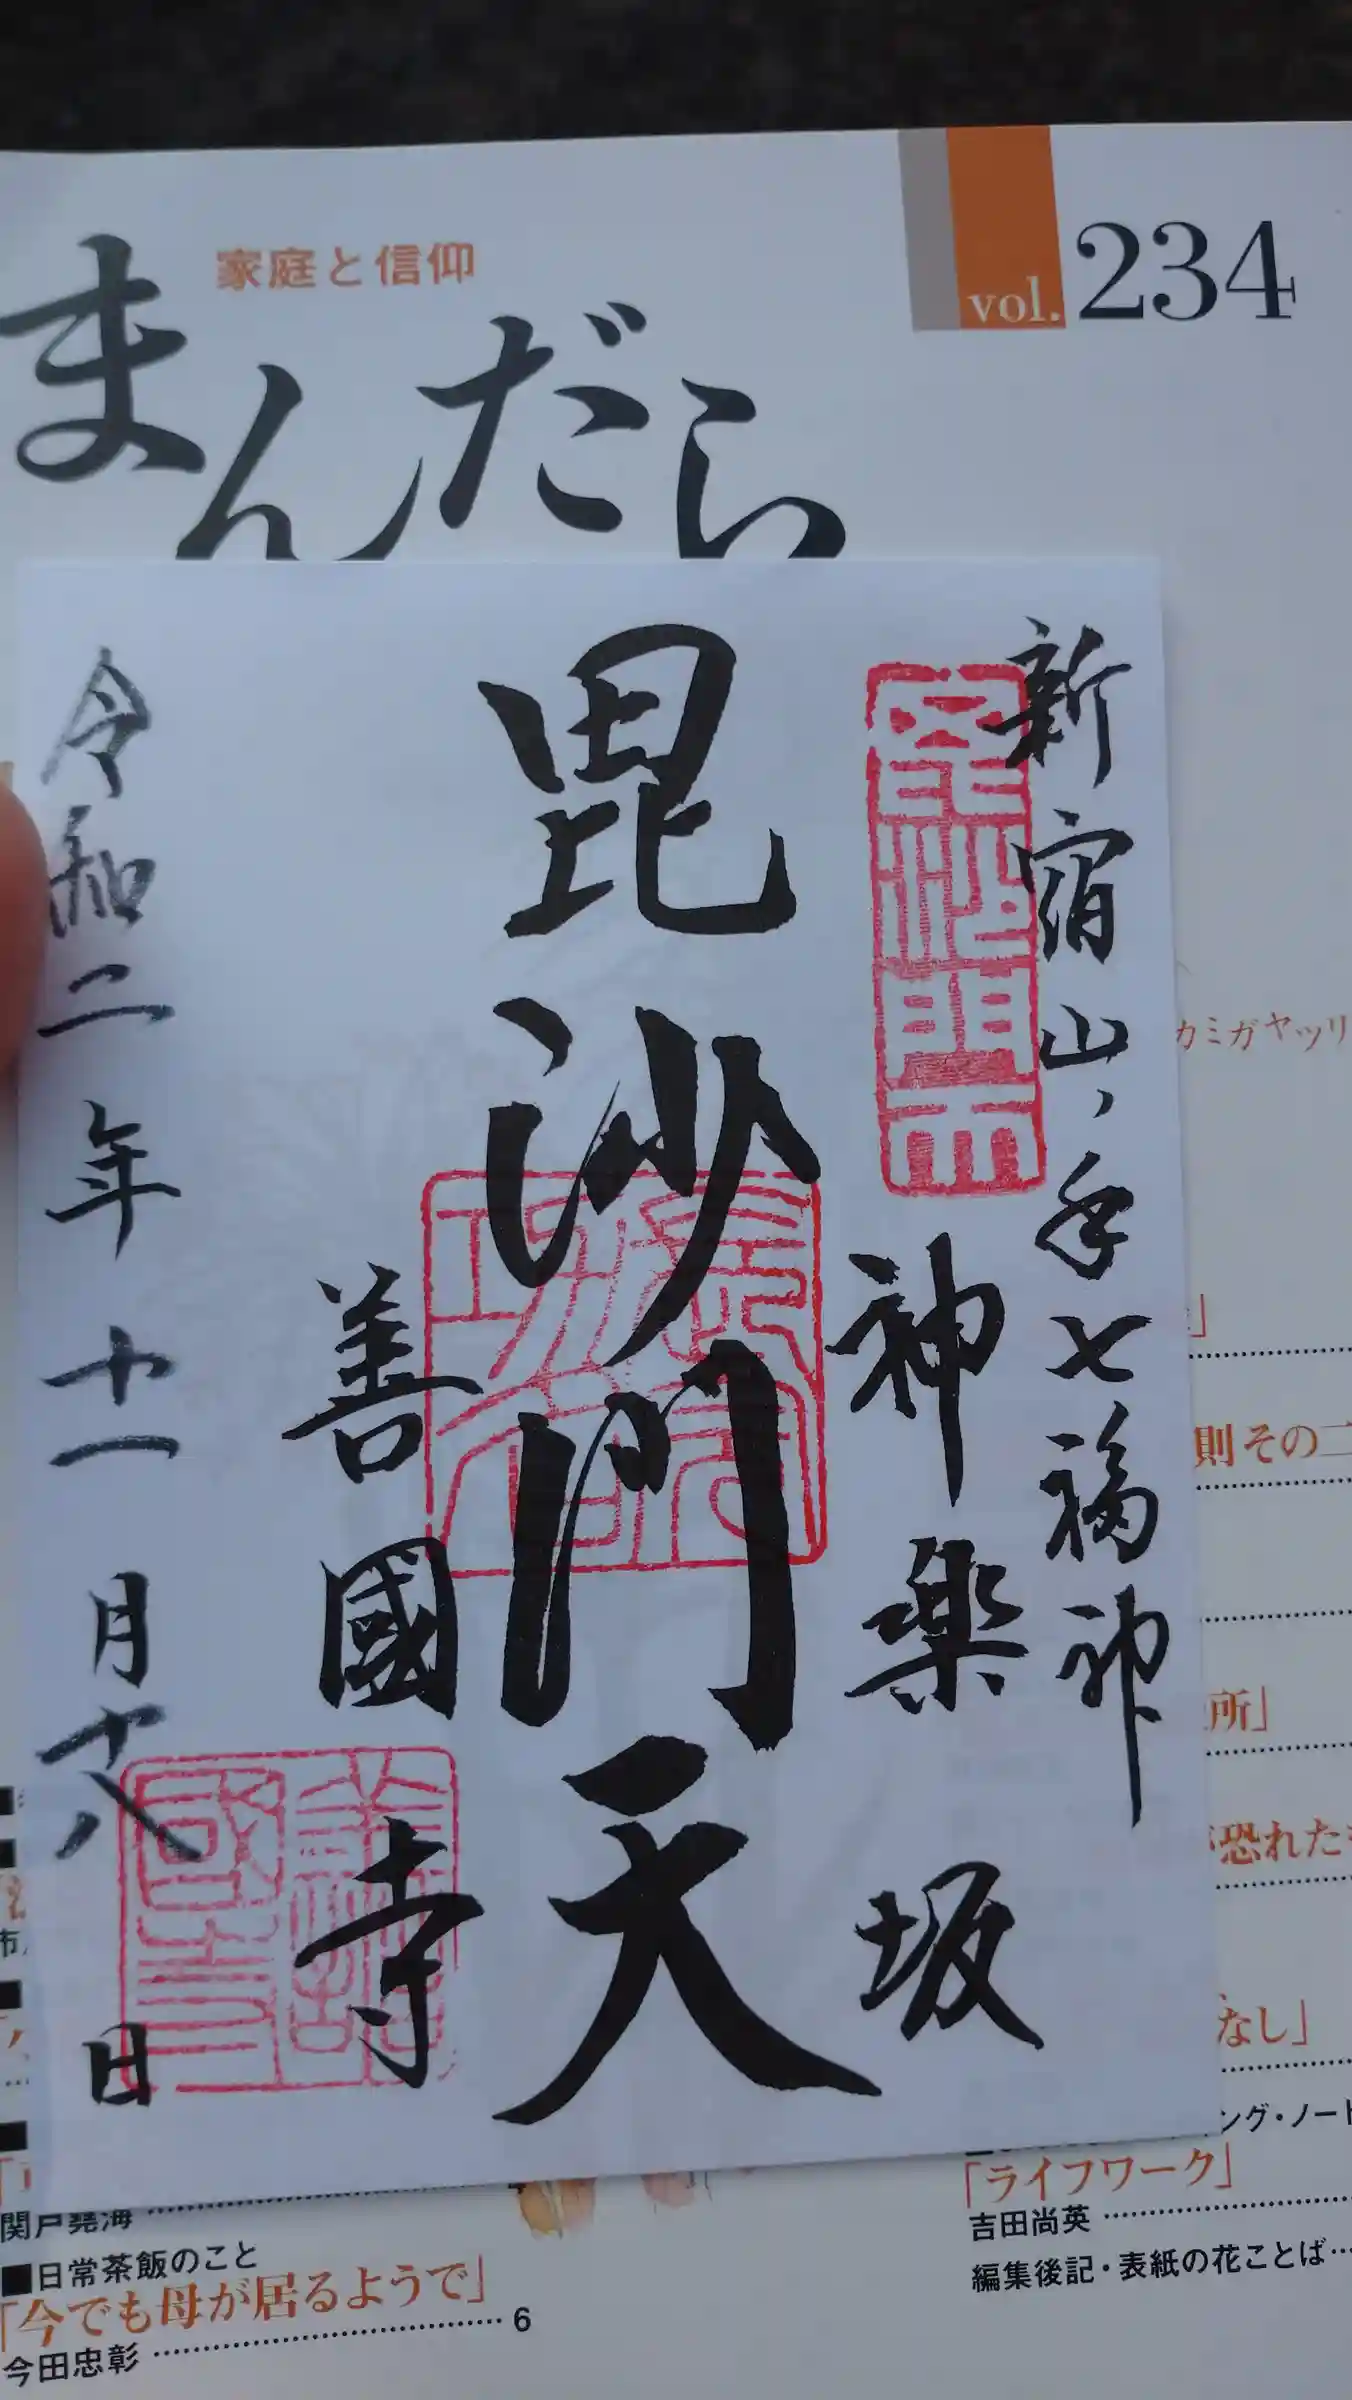 家庭と信仰
まんだら
vol. 234
新宿山ノ手七福神
神楽坂
毘沙門天
善國寺
令和二年十一月十八日
カミガヤツリ
則その二
所」
恐れた
なし」
ング・ノート
「ライフワーク」
吉田尚英
編集後記・表紙の花ことば
関戸堯海
■日常茶飯のこと
「今でも母が居るようで」
6
今田忠彰